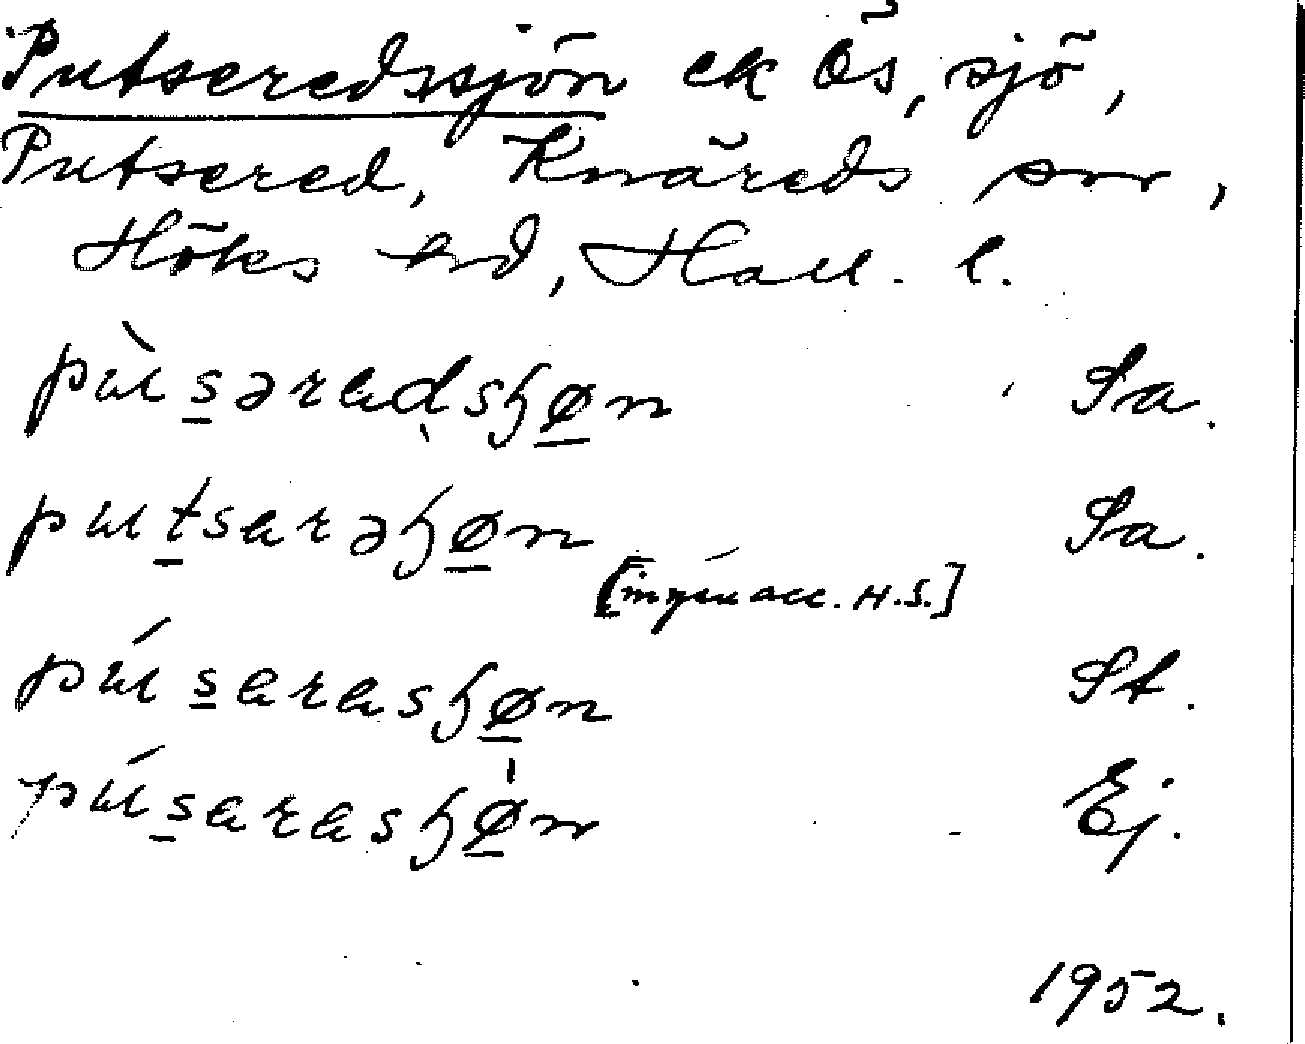 Putseredssjön ek Ös, sjö,
Putsered, Knäreds sn,
Höks hd, Hall. l.
pùt s̲ərɐdsɧø̲n Sa.
put̲sɐrəɧø̲n Sa.
[ingen acc. H.S.]
pút s̲ɐrɐsɧø̲n St.
pút s̲ɐrɐsɧø̲n Ej.
1952.